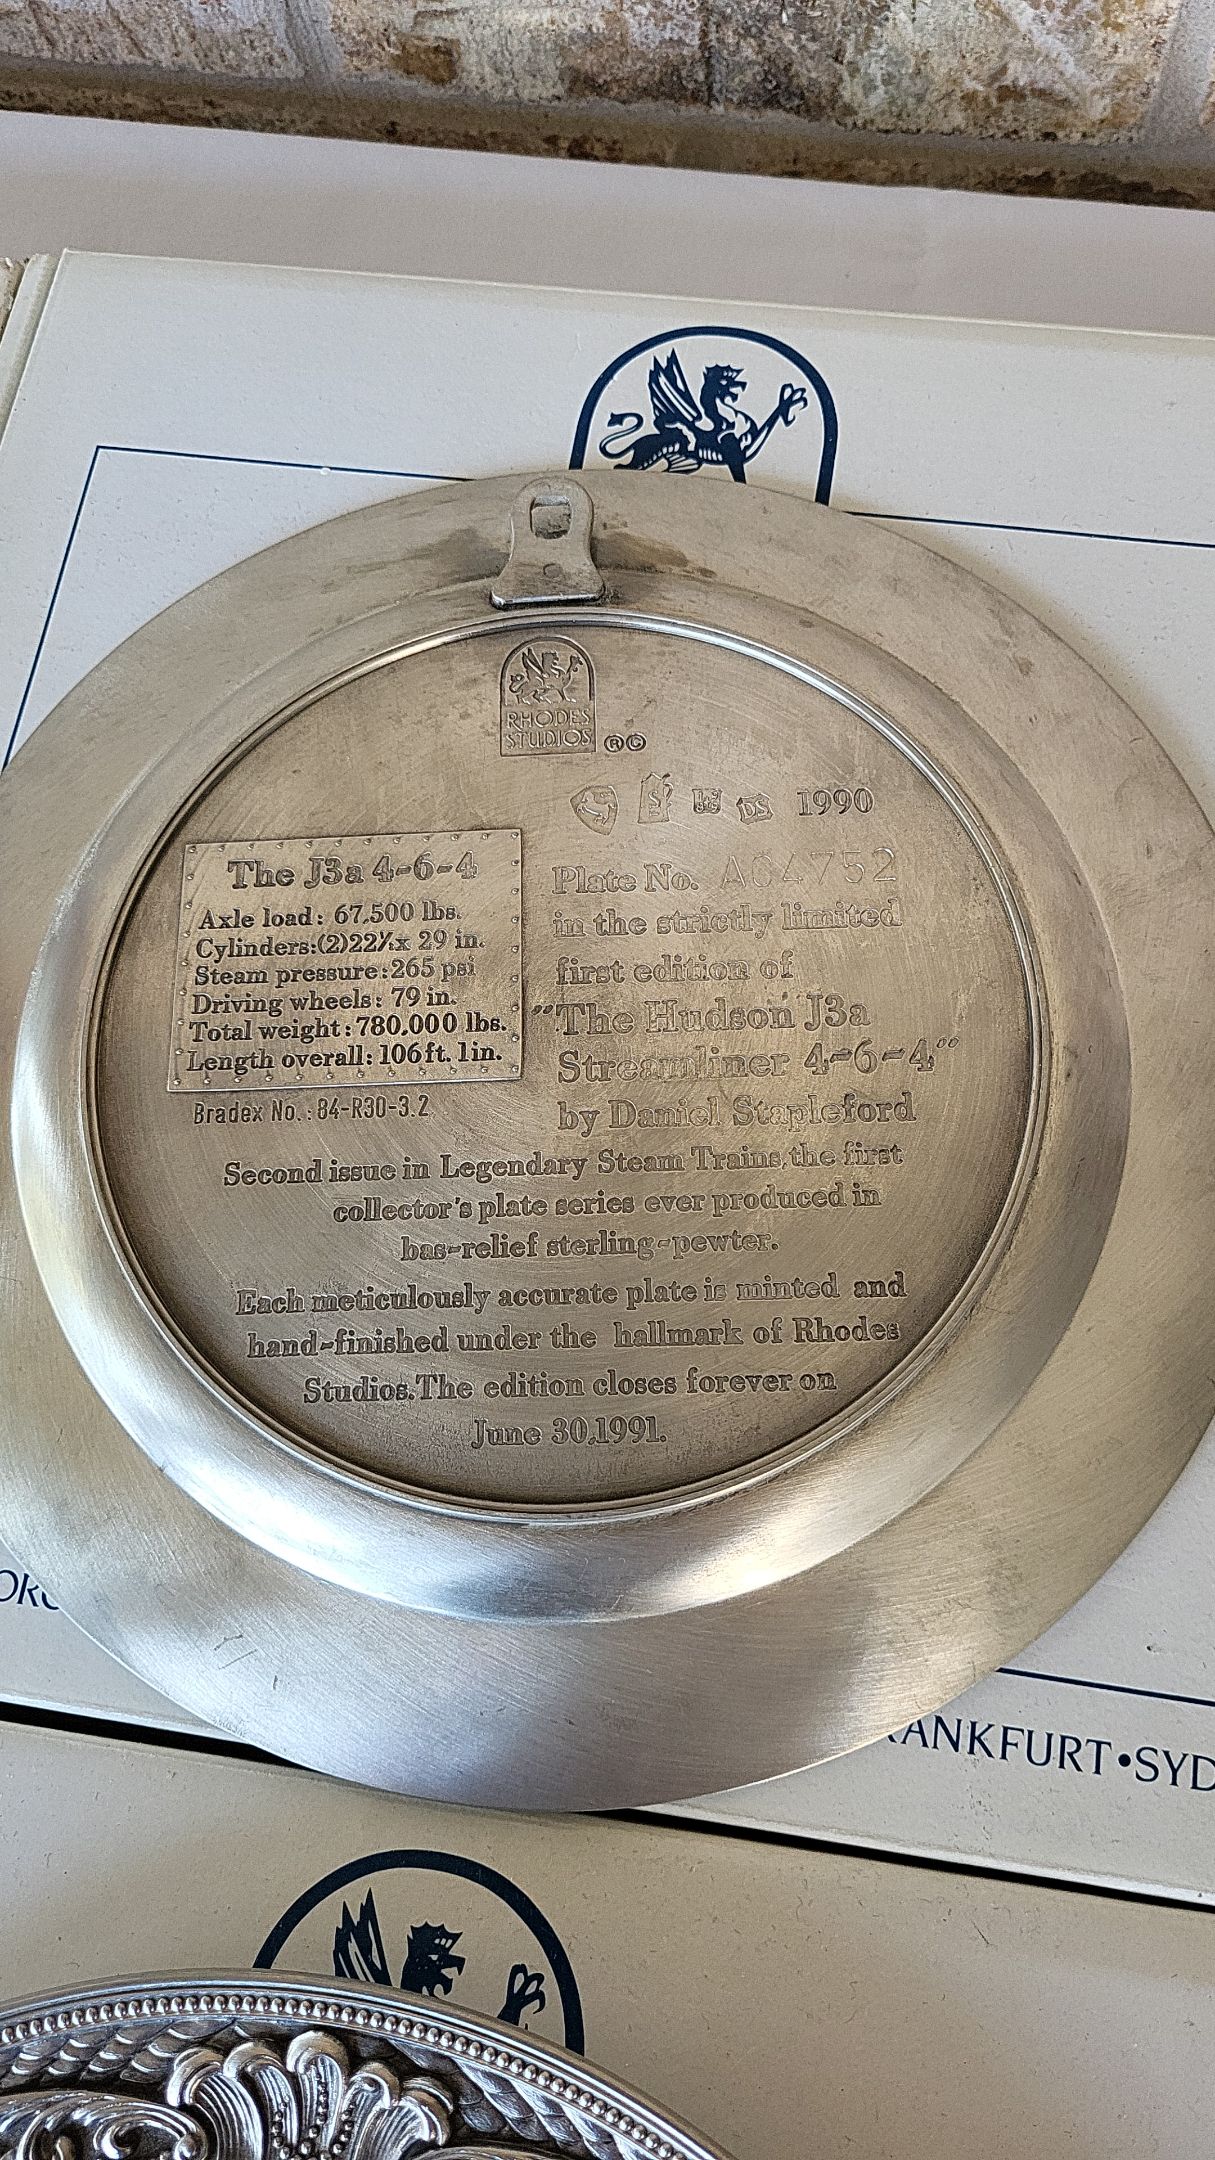 RHODES
STUDIOS ®©
S DS 1990
The J3a 4-6-4
Axle load: 67,500 lbs.
Cylinders:(2)22½x 29 in.
Steam pressure:265 psi
Driving wheels: 79 in.
Total weight:780,000 lbs.
Length overall: 106 ft. 1 in.
Bradex No.: 84-R30-3.2
Plate No. A04752
in the strictly limited
first edition of
"The Hudson J3a
Streamliner 4-6-4"
by Daniel Stapleford
Second issue in Legendary Steam Trains, the first
collector's plate series ever produced in
bas-relief sterling-pewter.
Each meticulously accurate plate is minted and
hand-finished under the hallmark of Rhodes
Studios. The edition closes forever on
June 30, 1991.
ANKFURT•SYD